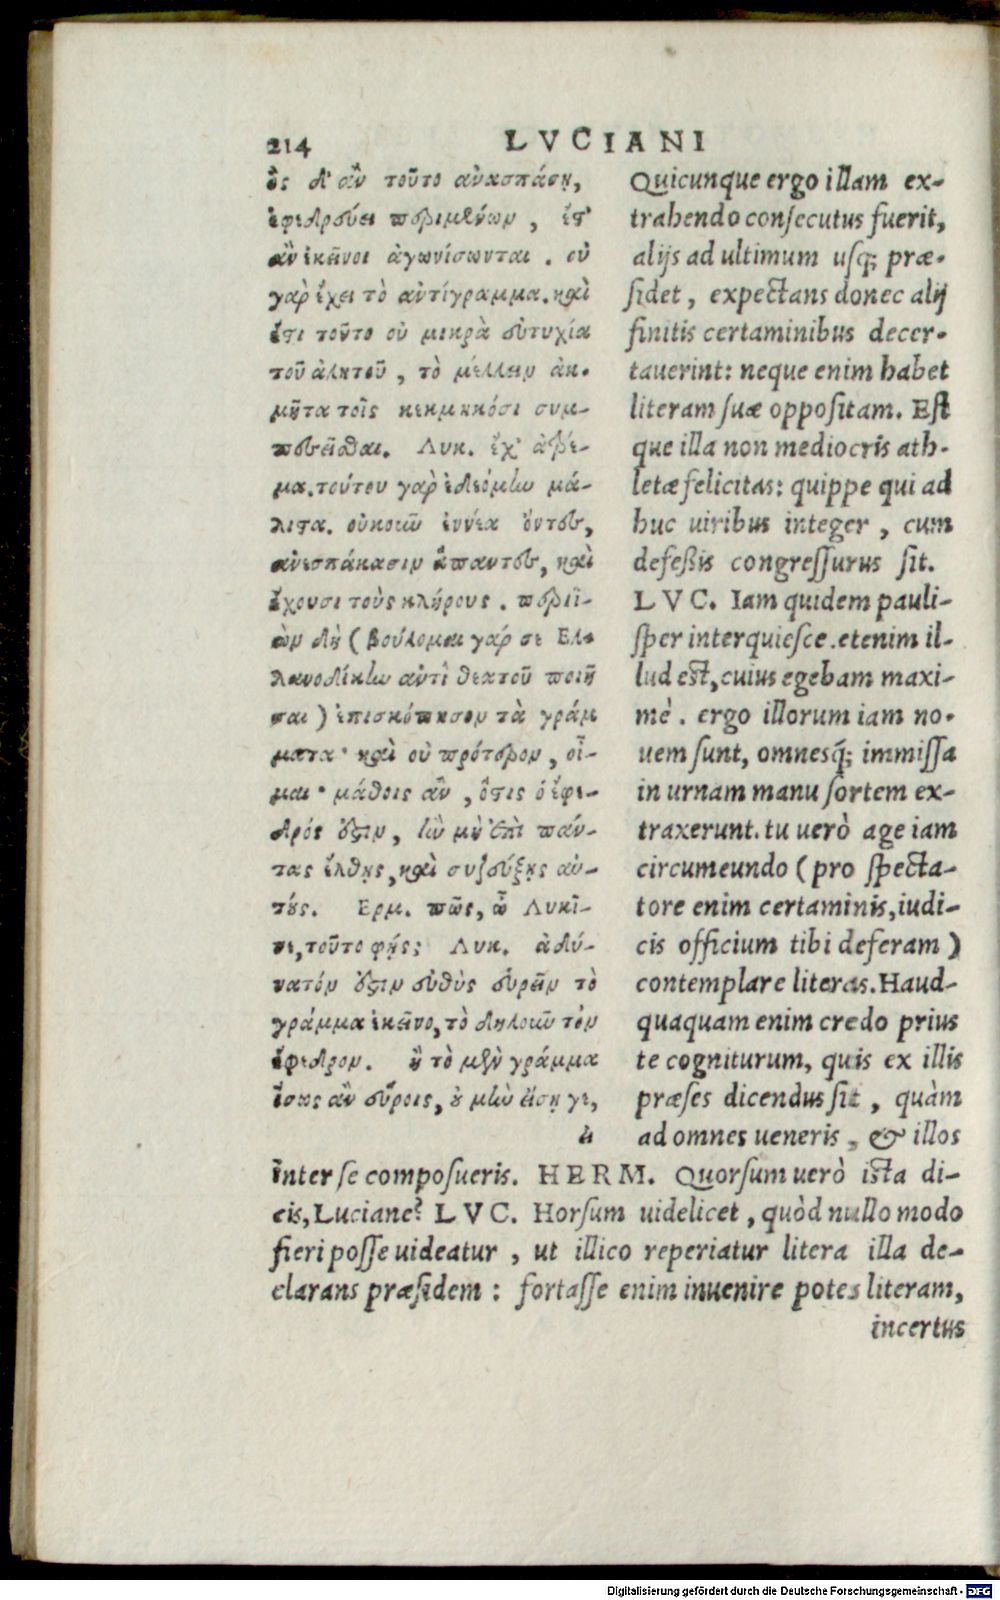 214 LVCIANI
ὃς δ' ἂν τοῦτο ἀνασπάσῃ,
ἐφεδρεύει περιμένων, ἔστ'
ἂν ἐκεῖνοι ἀγωνίσωνται. οὐ
γὰρ ἔχει τὸ ἀντίγραμμα. καὶ
ἔστι τοῦτο οὐ μικρὰ εὐτυχία
τοῦ ἀλητοῦ, τὸ μέλλειν ἀκ-
μῆτα τοῖς κεκμηκόσι συμ-
πεσεῖσθαι. Λυκ. ἔχ' ἀτρέ-
μα. τούτου γὰρ ἐδεόμην μά-
λιστα. οὐκοῦν ἐννέα ὄντες,
ἀνεσπάκασιν ἅπαντες, καὶ
ἔχουσι τοὺς κλήρους. περιϊ-
ὼν δὴ (βούλομαι γάρ σε Ελ-
λανοδίκην αντὶ θεατοῦ ποιῆ
σαι) ἐπισκόπησον τὰ γράμ
ματα· καὶ οὐ πρότερον, οἶ-
μαι· μάθοις ἂν, ὅστις ὁ ἔφε-
δρός ἐστιν, ἢν μὴ ἐπὶ πάν-
τας ἔλθῃς, καὶ συζεύξῃς αὐ-
τούς. Ερμ. πῶς, ὦ Λυκῖ-
νε, τοῦτο φῄς; Λυκ. ἀδύ-
νατόν ἐστιν εὐθὺς εὑρεῖν τὸ
γράμμα ἐκεῖνο, τὸ δηλοῦν τὸν
ἔφεδρον. ἢ τὸ μὲν γράμμα
ἴσως ἂν εὕροις, οὐ μὴν εἴσῃ γε,
εἰ
Quicunque ergo illam ex-
trahendo consecutus fuerit,
alijs ad ultimum usq; præ-
sidet, expectans donec alij
finitis certaminibus decer-
tauerint: neque enim habet
literam suæ oppositam. Est
que illa non mediocris ath-
letæ felicitas: quippe qui ad
huc uiribus integer, cum
defeßis congressurus sit.
LVC. Iam quidem pauli-
sper interquiesce. etenim il-
lud est, cuius egebam maxi-
mè. ergo illorum iam no-
uem sunt, omnesq́; immissa
in urnam manu sortem ex-
traxerunt. tu uerò age iam
circumeundo (pro specta-
tore enim certaminis, iudi-
cis officium tibi deferam)
contemplare literas. Haud-
quaquam enim credo prius
te cogniturum, quis ex illis
præses dicendus sit, quàm
ad omnes ueneris, & illos
inter se composueris. HERM. Quorsum uerò ista di-
cis, Luciane? LVC. Horsum uidelicet, quòd nullo modo
fieri posse uideatur, ut illico reperiatur litera illa de-
clarans præsidem: fortasse enim inuenire potes literam,
incertus
Digitalisierung gefördert durch die Deutsche Forschungsgemeinschaft - DFG